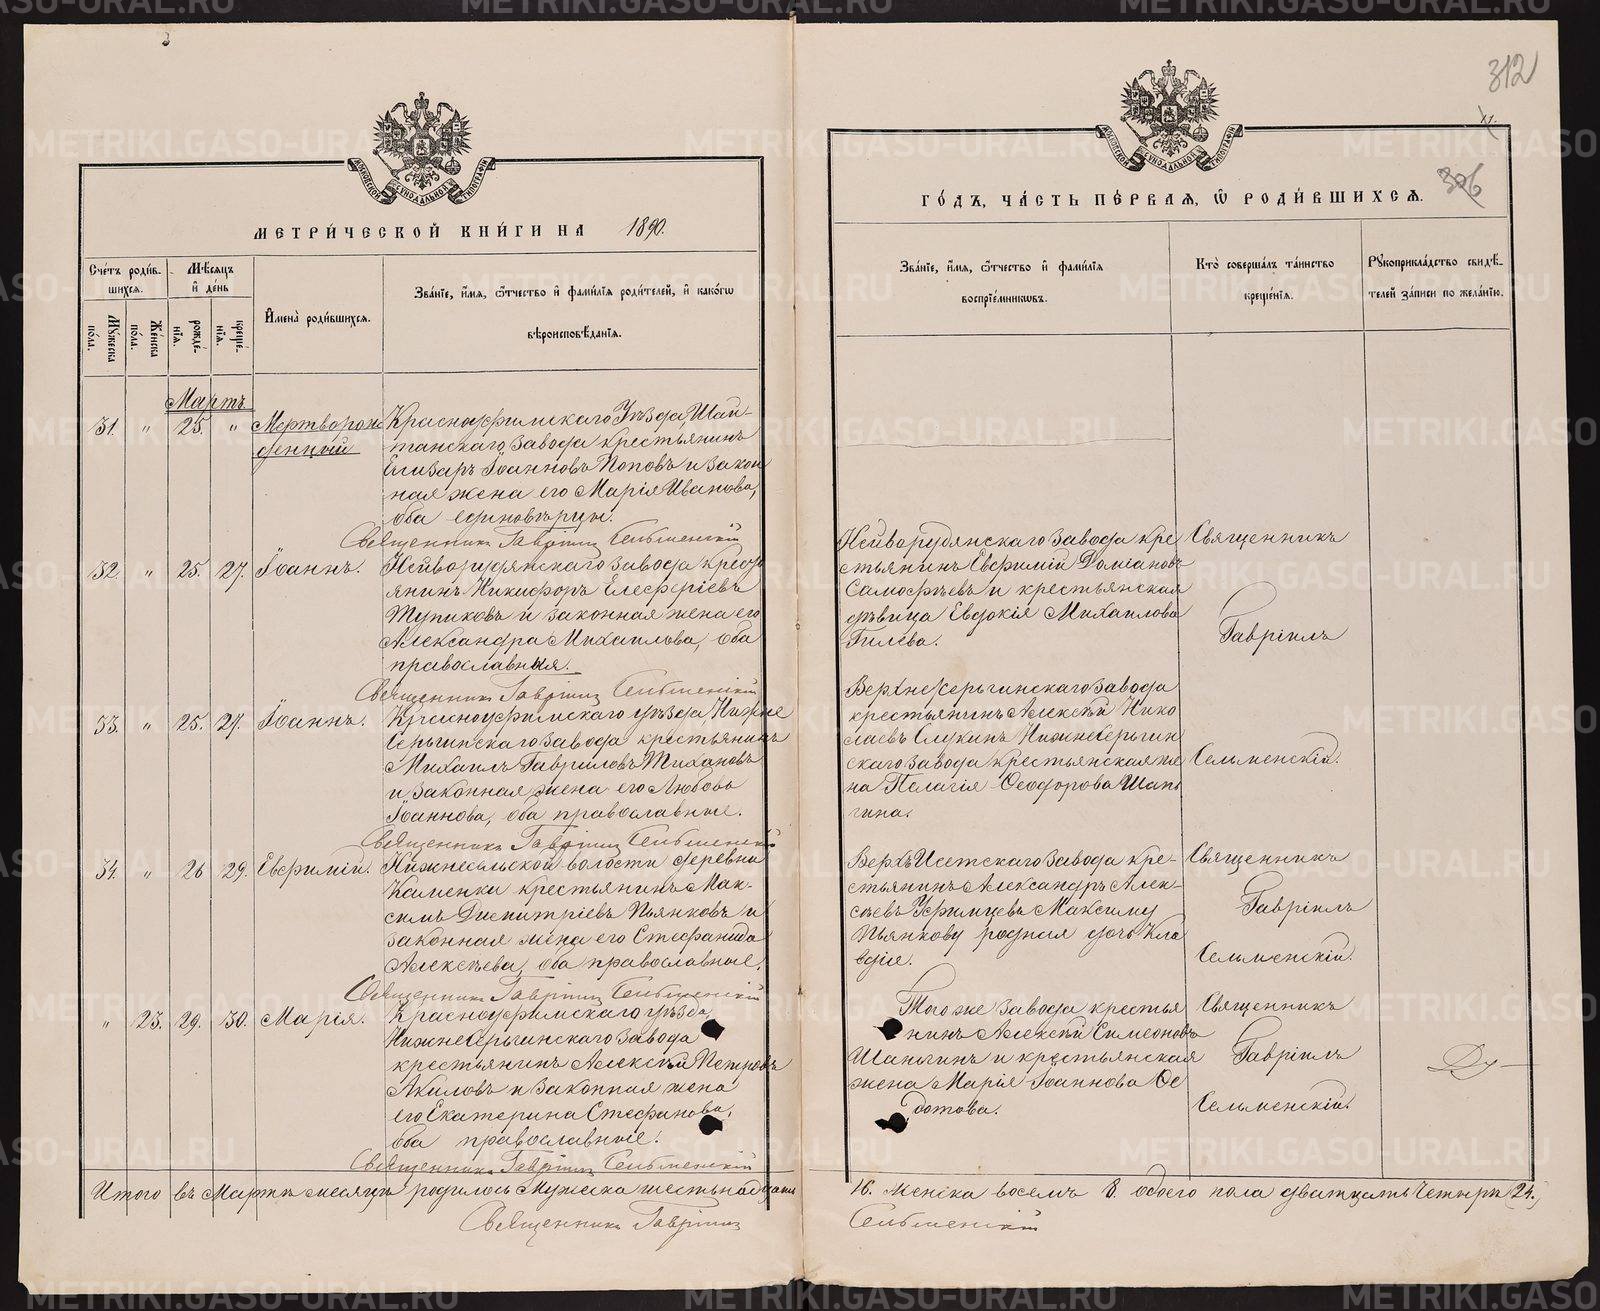 312
306
МЕТРИ́ЧЕСКОЙ КНИ́ГИ НА 1890.
Сче́тъ роди́вшихся.
Му́жеска по́ла.
Же́нска по́ла.
Мѣ́сяцъ и҆ де́нь
рожде́нїѧ.
креще́нїѧ.
И҆мена̀ роди́вшихсѧ.
Зва́нїе, и҆́мѧ, ѻ҆́тчество и҆ фами́лїѧ роди́телей, и҆ како́гѡ
вѣроисповѣ́данїѧ.
Мартъ
31. " 25. " Мертворож
денный
Красноуфимскаго Уѣзда, Шай-
танскаго завода крестьянинъ
Елизаръ Іоанновъ Поповъ и закон
ная жена его Марія Иванова,
оба единовѣрцы.
Священникъ Гавріилъ Сельменскій
32. " 25. 27. Іоаннъ.
Нейворудянскаго завода кресть
янинъ Никифоръ Елеферіевъ
Тупиковъ и законная жена его
Александра Михаилова, оба
православныя.
Священникъ Гавріилъ Сельменскій
33. " 25. 27. Іоаннъ.
Красноуфимскаго уѣзда Нижне
Сергинскаго завода крестьянинъ
Михаилъ Гавриловъ Тихановъ
и законная жена его Любовь
Іоаннова, оба православные.
Священникъ Гавріилъ Сельменскій
34. " 26 29. Евфимій.
Нижнесельской волости деревни
Каменки крестьянинъ Мак-
симъ Димитріевъ Пьянковъ и
законная жена его Стефанида
Алексѣева, оба православные.
Священникъ Гавріилъ Сельменскій
" 23. 29. 30. Марія.
Красноуфимскаго уѣзда,
НижнеСергинскаго завода
крестьянинъ Алексѣй Петровъ
Акиловъ и законная жена
его Екатерина Стефанова,
оба православные.
Священникъ Гавріилъ Сельменскій
Итого въ Мартѣ мѣсяцѣ родилось Мужеска шестьнадцать
Священникъ Гавріилъ
ГО́ДЪ, ЧА́СТЬ ПЕ́РВАѦ, Ѡ҆ РОДИ́ВШИХСѦ.
Зва́нїе, и҆́мѧ, ѻ҆́тчество и҆ фами́лїѧ
воспрїе́мниковъ.
Кто̀ соверша́лъ та́инство
креще́нїѧ.
Рꙋкоприкла́дство свидѣ́-
телей за́писи по жела́нїю.
Нейворудянскаго завода кре
стьянинъ Евфимій Даміановъ
Самофѣевъ и крестьянская
дѣвица Евдокія Михаилова
Гилева.
Священникъ
Гавріилъ
Верхнесергинскаго завода
крестьянинъ Алексѣй Нико
лаевъ Слукинъ НижнеСергин
скаго завода крестьянская же
на Пелагія Ѳеодорова Шань
гина.
Сельменскій.
ВерхъИсетскаго завода кре-
стьянинъ Александръ Алек-
сѣевъ Уфимцевъ Максиму
Пьянкову родная дочь Кла
вдія.
Священникъ
Гавріилъ
Сельменскій.
Тогоже завода крестья
нинъ Алексѣй Симеоновъ
Шаньгинъ и крестьянская
жена Марія Іоаннова Ѳе
дотова.
Священникъ
Гавріилъ
Сельменскій.
16. Женска восемь 8. обоего пола дватцать Четыре (24.)
Сельменскій